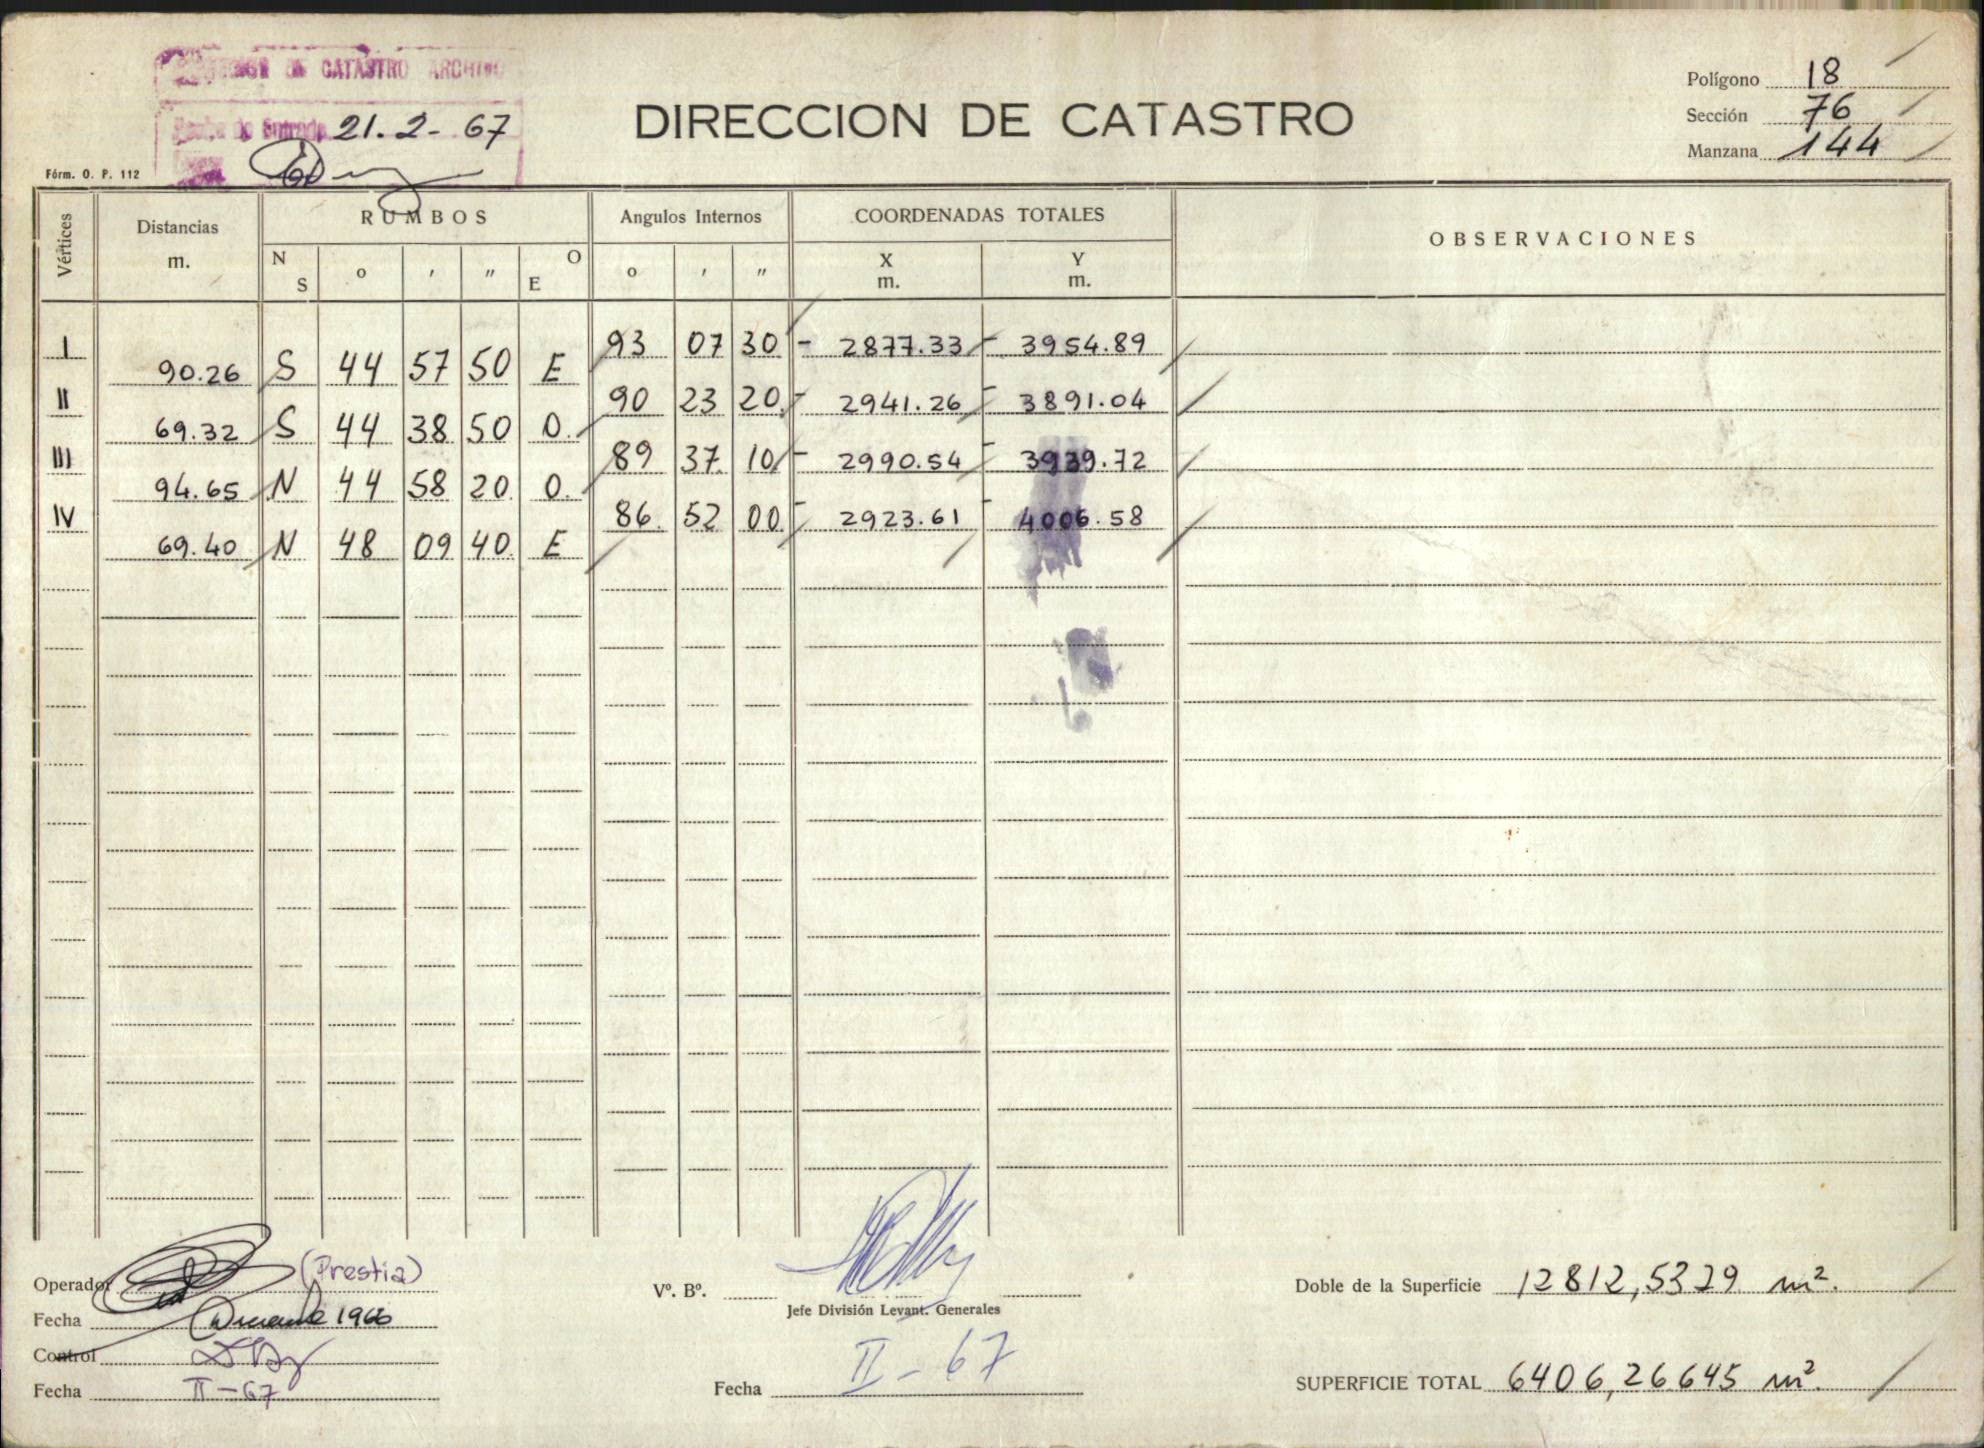 DE CATASTRO ARCHIVO
Fecha de Entrada 21.2-67
DIRECCION DE CATASTRO
Polígono 18
Sección 76
Manzana 144
Fórm. O. P. 112
Vértices Distancias m. RUMBOS Angulos Internos COORDENADAS TOTALES OBSERVACIONES
N S º ' " O E º ' " X m. Y m.
I 93 07 30 - 2877.33 - 3954.89
90.26 S 44 57 50 E
II 90 23 20 - 2941.26 - 3891.04
69.32 S 44 38 50 O.
III 89 37 10 - 2990.54 - 3939.72
94.65 N 44 58 20 O.
IV 86 52 00 - 2923.61 - 4006.58
69.40 N 48 09 40 E
Operador (Prestia)
Fecha Diciembre 1966
Control
Fecha II-67
Vº. Bº.
Jefe División Levant. Generales
Fecha II-67
Doble de la Superficie 12812,5329 m².
SUPERFICIE TOTAL 6406,26645 m².